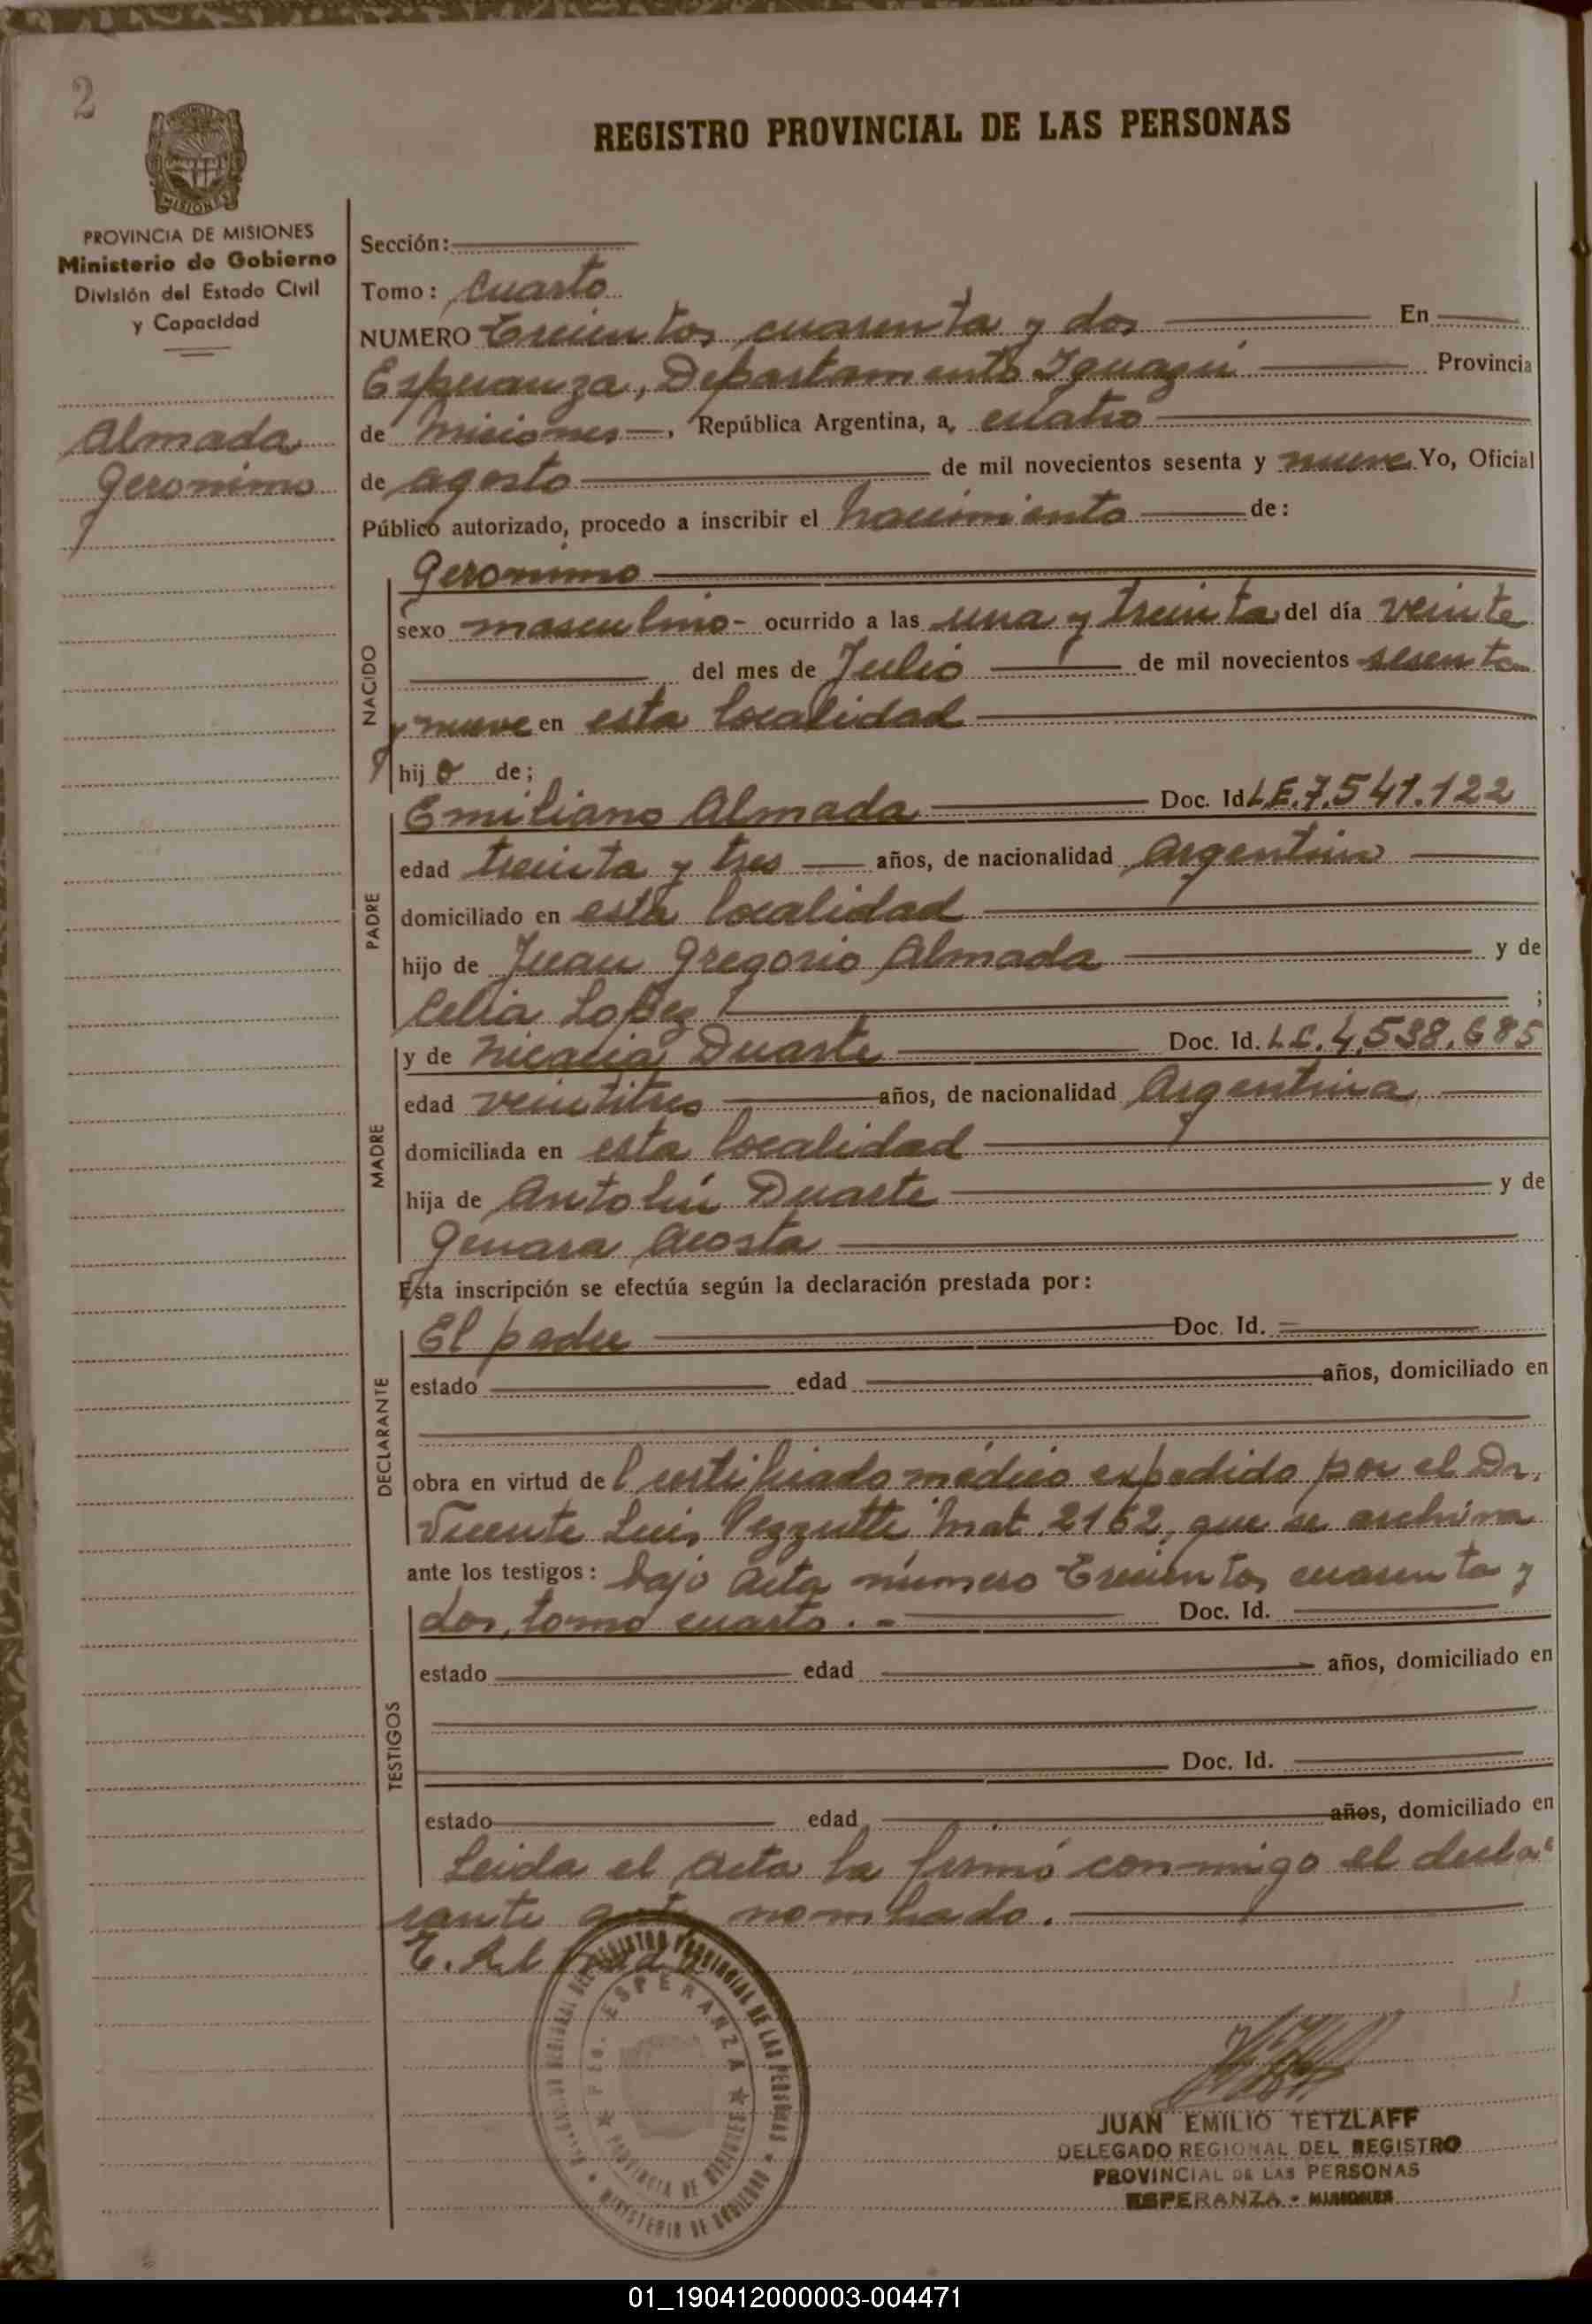 2
REGISTRO PROVINCIAL DE LAS PERSONAS
MISIONES
PROVINCIA DE MISIONES
Ministerio de Gobierno
División del Estado Civil
y Capacidad
Almada
Geronimo
Sección:
Tomo: Cuarto
NUMERO Trecientos cuarenta y dos En
Esperanza, Departamento Iguazú Provincia
de Misiones, República Argentina, a, cuatro
de agosto de mil novecientos sesenta y nueve Yo, Oficial
Público autorizado, procedo a inscribir el nacimiento de:
NACIDO
Geronimo
sexo masculino - ocurrido a las una y treinta del día veinte
del mes de Julio de mil novecientos sesenta
y nueve en esta localidad
hijo de;
PADRE
Emiliano Almada Doc. Id L.E. 7.541.122
edad treinta y tres años, de nacionalidad Argentino
domiciliado en esta localidad
hijo de Juan Gregorio Almada y de
Celia Lopez ;
MADRE
y de Nicacia Duarte Doc. Id. L.C. 4.538.685
edad veintitres años, de nacionalidad Argentina
domiciliada en esta localidad
hija de Antolín Duarte y de
Genara Acosta
Esta inscripción se efectúa según la declaración prestada por:
DECLARANTE
El padre Doc. Id.
estado edad años, domiciliado en
obra en virtud del certificado médico expedido por el Dr.
Vicente Luis Pezzutti Mat. 2162, que se archiva
ante los testigos: bajo Acta número Trecientos cuarenta y
TESTIGOS
dos, tomo cuarto. - Doc. Id.
estado edad años, domiciliado en
Doc. Id.
estado edad años, domiciliado en
Leida el Acta la firmó conmigo el decla-
rante nombrado.
REGISTRO PROVINCIAL DE LAS PERSONAS
ESPERANZA
PROVINCIA DE MISIONES
MINISTERIO DE GOBIERNO
JUAN EMILIO TETZLAFF
DELEGADO REGIONAL DEL REGISTRO
PROVINCIAL DE LAS PERSONAS
ESPERANZA - MISIONES
01_190412000003-004471